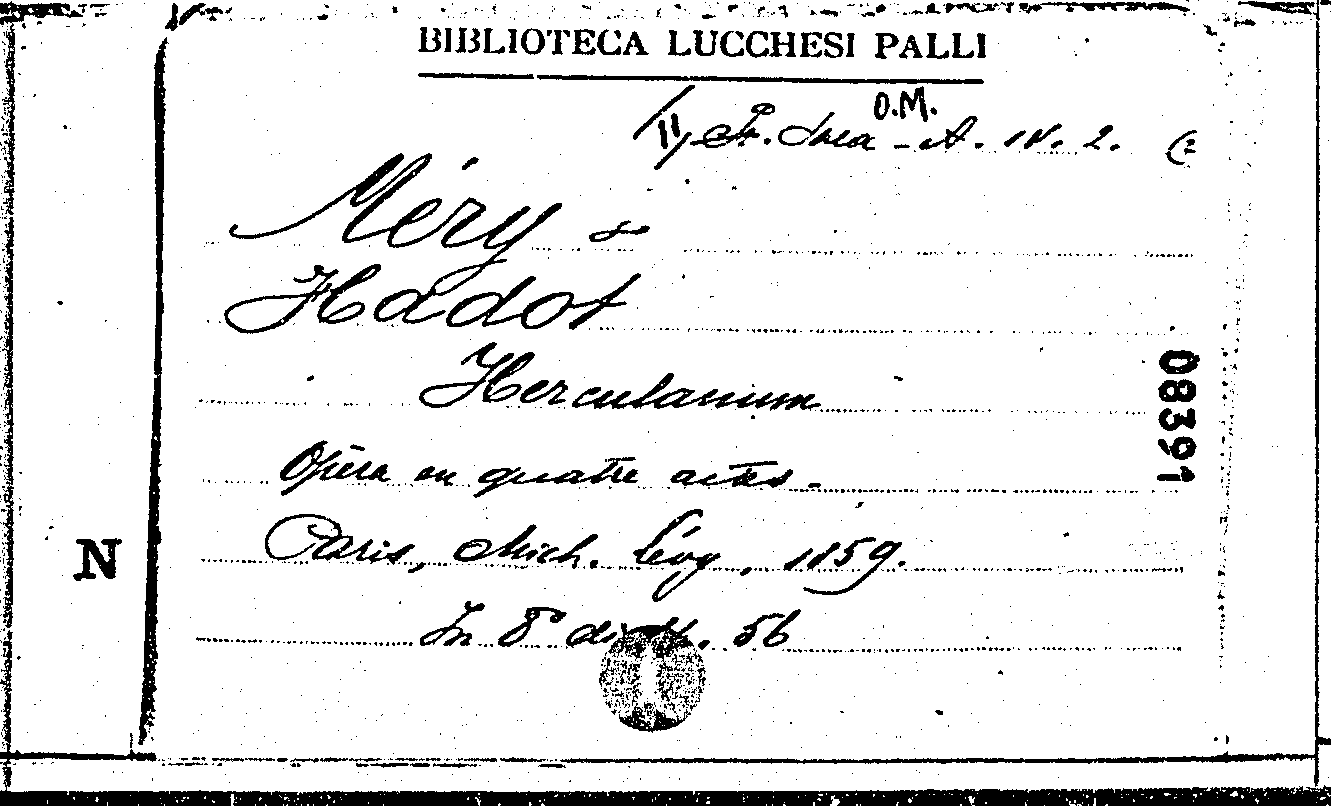 BIBLIOTECA LUCCHESI PALLI
O.M.
A. IV. 2. (2
Méry &
Hadot
Herculanum
Opéra en quatre actes.
Paris, Mich. Lévy, 1859.
In 8° di 56
08391
N